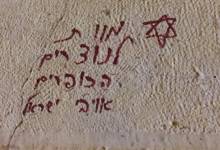 מוות
לנוצרים
הכופרים
אויבי ישראל